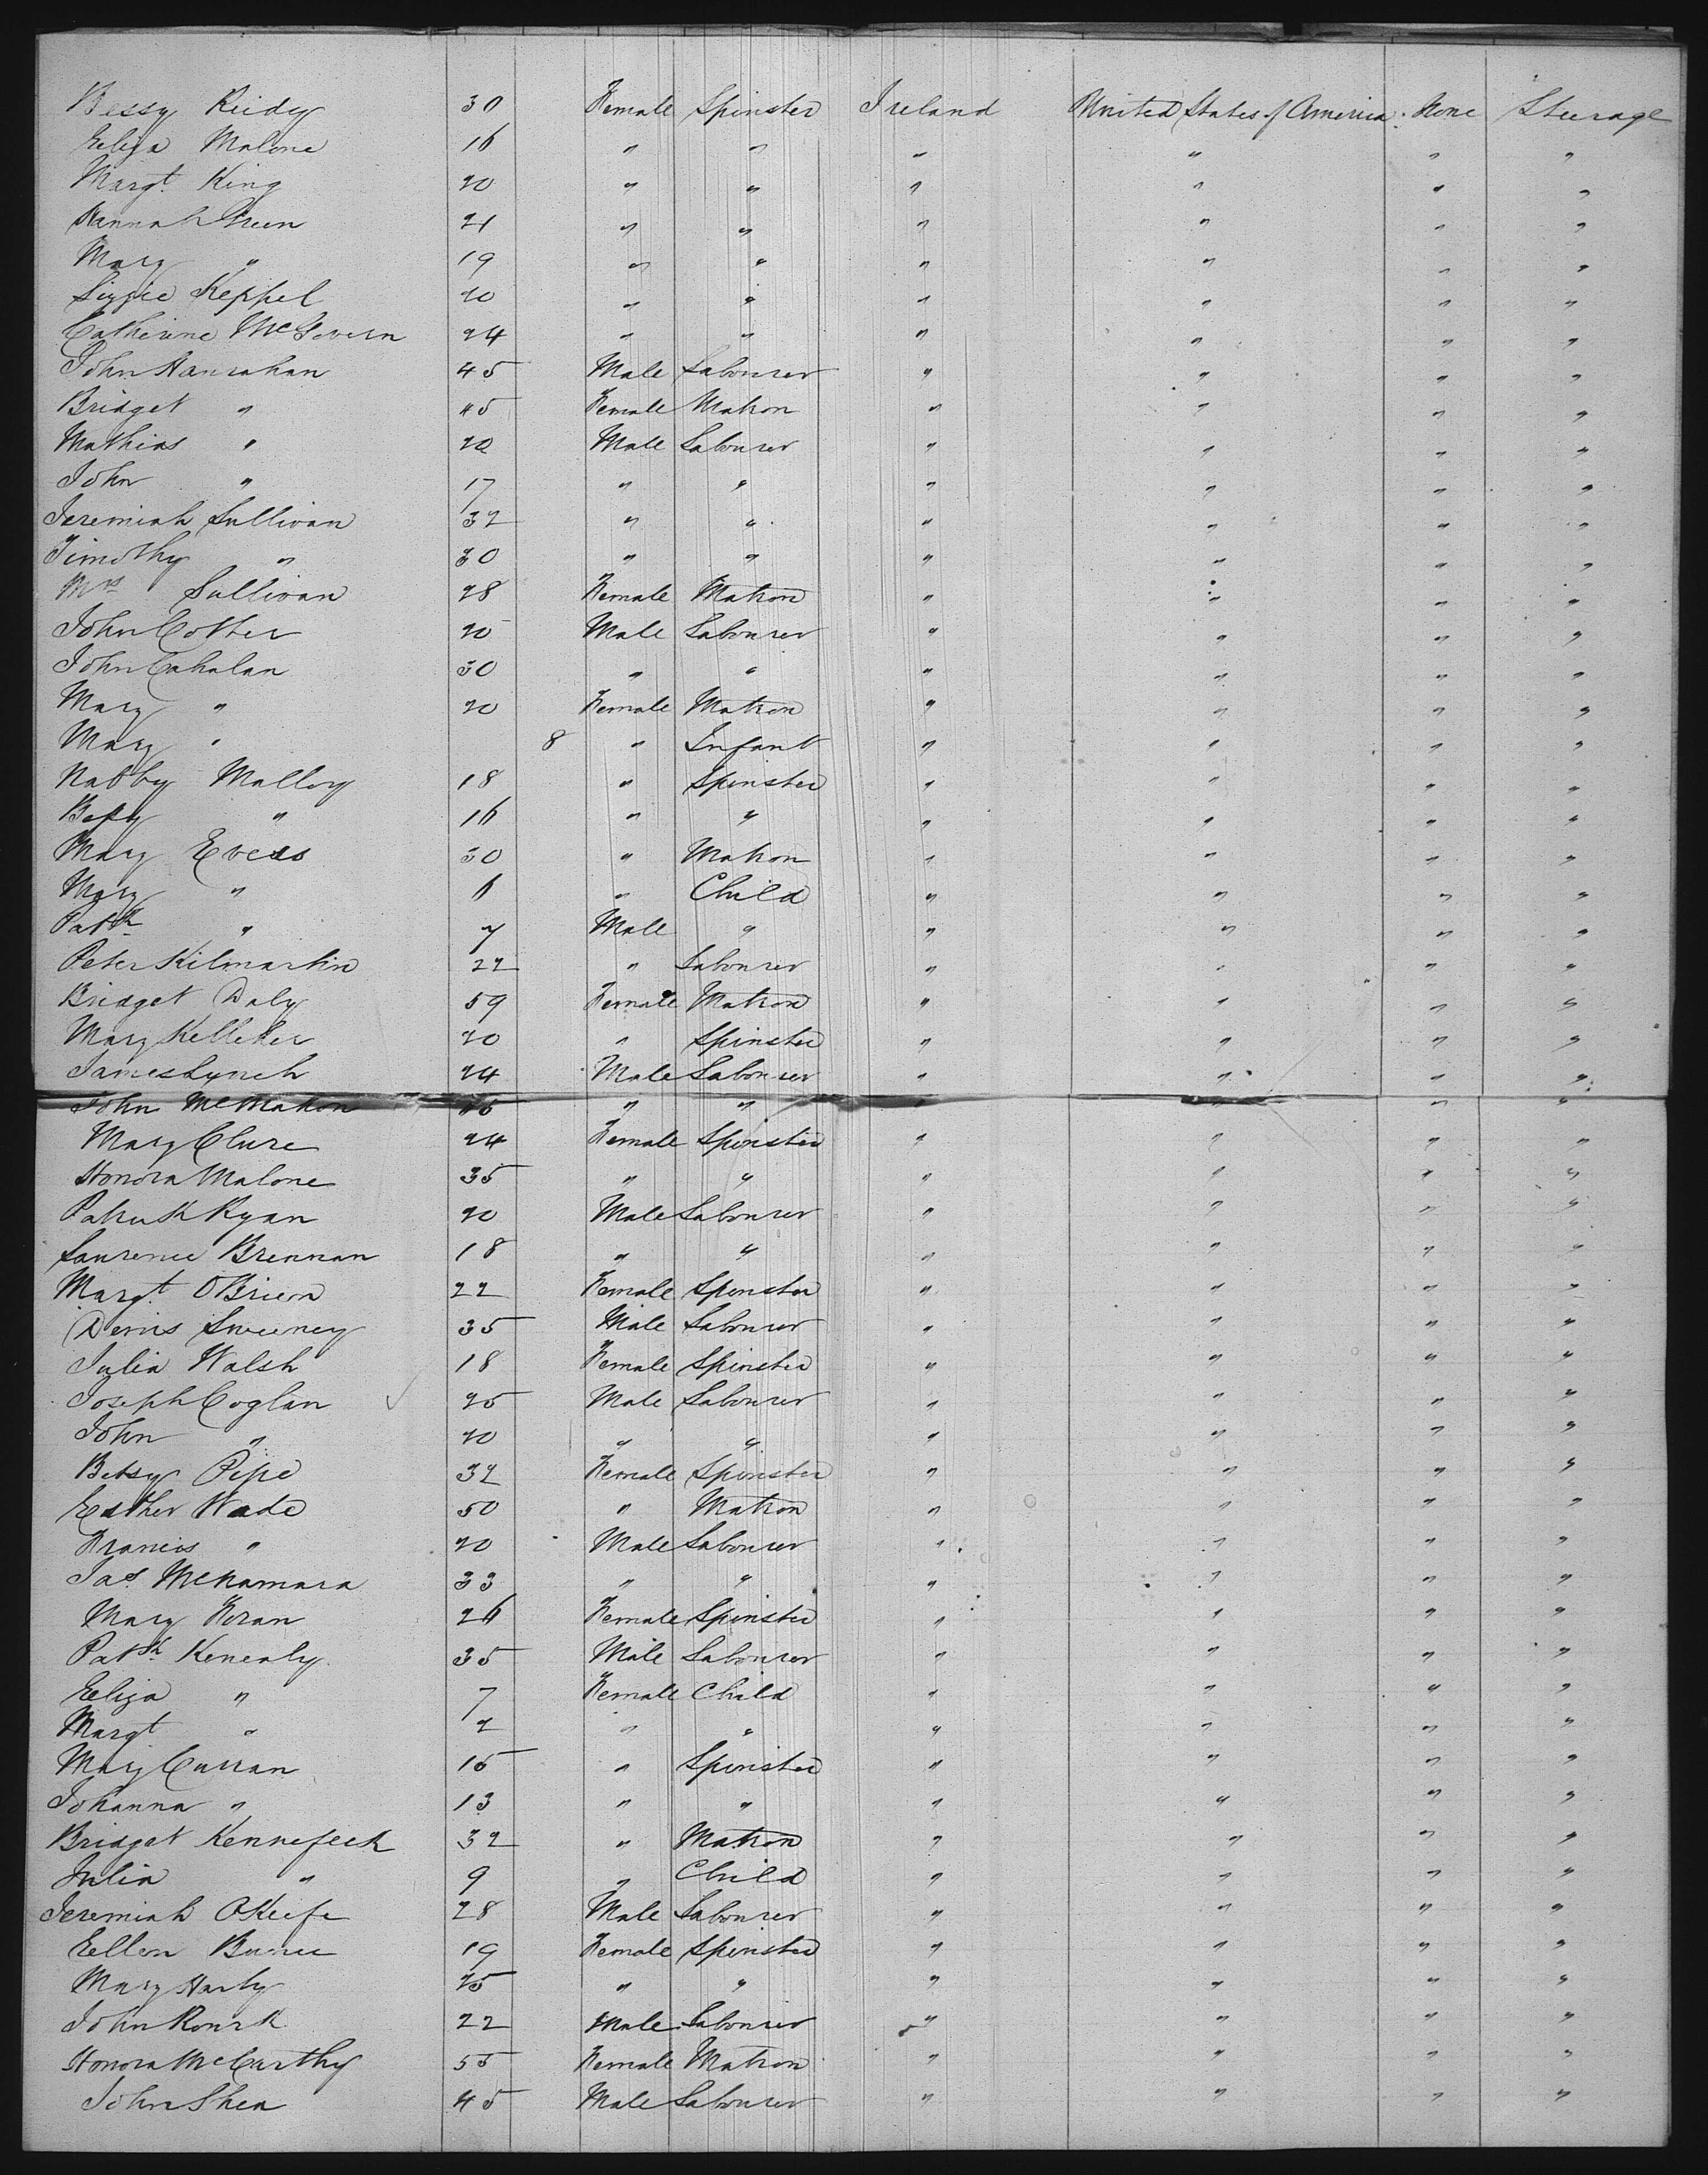 Bessy Reidy 30 Female Spinster Ireland United States of America. None Steerage
Eliza Malone 16 " " " " " "
Margt. King 20 " " " " " "
Hannah Green 21 " " " " " "
Mary " 19 " " " " " "
Lizzie Keppel 20 " " " " " "
Catherine McGovern 24 " " " " " "
John Hanrahan 45 Male Labourer " " " "
Bridget " 45 Female Matron " " " "
Mathias " 20 Male Labourer " " " "
John " 17 " " " " " "
Jeremiah Sullivan 32 " " " " " "
Timothy " 30 " " " " " "
Mrs Sullivan 28 Female Matron " " " "
John Cotter 20 Male Labourer " " " "
John Cahalan 30 " " " " " "
Mary " 20 Female Matron " " " "
Mary " 8 " Infant " " " "
Nabby Malloy 18 " Spinster " " " "
Bessy " 16 " " " " " "
Mary Evers 30 " Matron " " " "
Mary " 6 " Child " " " "
Patk " 7 Male " " " " "
Peter Kilmartin 22 " Labourer " " " "
Bridget Daly 59 Female Matron " " " "
Mary Kelleher 20 " Spinster " " " "
James Lynch 24 Male Labourer " " " "
John McMahon " " " " " "
Mary Clure 24 Female Spinster " " " "
Honora Malone 35 " " " " " "
Patrick Ryan 20 Male Labourer " " " "
Laurence Brennan 18 " " " " " "
Margt. OBrien 22 Female Spinster " " " "
Denis Sweeney 35 Male Labourer " " " "
Julia Walsh 18 Female Spinster " " " "
Joseph Coglan 25 Male Labourer " " " "
John " 20 " " " " " "
Betsy Pipe 32 Female Spinster " " " "
Esther Wade 50 " Matron " " " "
Francis " 20 Male Labourer " " " "
Jas. McNamara 33 " " " " " "
Mary Horan 26 Female Spinster " " " "
Patk Kenealy 35 Male Labourer " " " "
Eliza " 7 Female Child " " " "
Margt " 2 " " " " " "
Mary Curran 15 " Spinster " " " "
Johanna " 13 " " " " " "
Bridget Kennefeck 32 " Matron " " " "
Julia " 9 " Child " " " "
Jeremiah OKeefe 28 Male Labourer " " " "
Ellen 19 Female Spinster " " " "
Mary Harly 25 " " " " " "
John Rourk 22 Male Labourer " " " "
Honora McCarthy 55 Female Matron " " " "
John Shea 45 Male Labourer " " " "